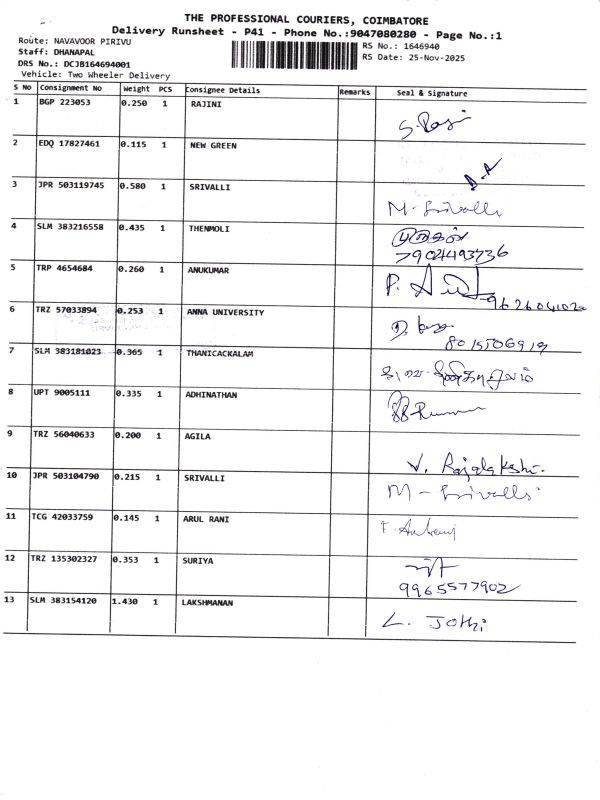 THE PROFESSIONAL COURIERS, COIMBATORE
Delivery Runsheet - P41 - Phone No.:9047080280 - Page No.:1
Route: NAVAVOOR PIRIVU
RS No.: 1646940
Staff: DHANAPAL
RS Date: 25-Nov-2025
DRS No.: DCJB164694001
Vehicle: Two Wheeler Delivery
S No Consignment No Weight PCS Consignee Details Remarks Seal & Signature
1 BGP 223053 0.250 1 RAJINI
2 EDQ 17827461 0.115 1 NEW GREEN
3 JPR 503119745 0.580 1 SRIVALLI M- Srivalli
4 SLM 383216558 0.435 1 THENMOLI
7904493736
5 TRP 4654684 0.260 1 ANUKUMAR
6 TRZ 57033894 0.253 1 ANNA UNIVERSITY
8015506919
7 SLM 383181023 0.365 1 THANICACKALAM
8 UPT 9005111 0.335 1 ADHINATHAN
9 TRZ 56040633 0.200 1 AGILA V. Rajalakshi.
10 JPR 503104790 0.215 1 SRIVALLI M - Srivalli
11 TCG 42033759 0.145 1 ARUL RANI
12 TRZ 135302327 0.353 1 SURIYA
9965577902
13 SLM 383154120 1.430 1 LAKSHMANAN L. Jothi